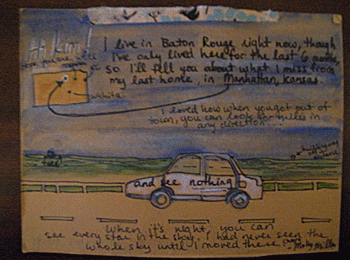 I live in Baton Rouge right now, though
I've only lived here for the last 6 months,
so I'll tell you about what I miss from
my last home, in Manhattan, Kansas.
wichita
I loved how when you got out of
town, you can look for miles in
any direction...
and see nothing
When it's night, you can
see every star in the sky. I had never seen the
whole sky until I moved there.